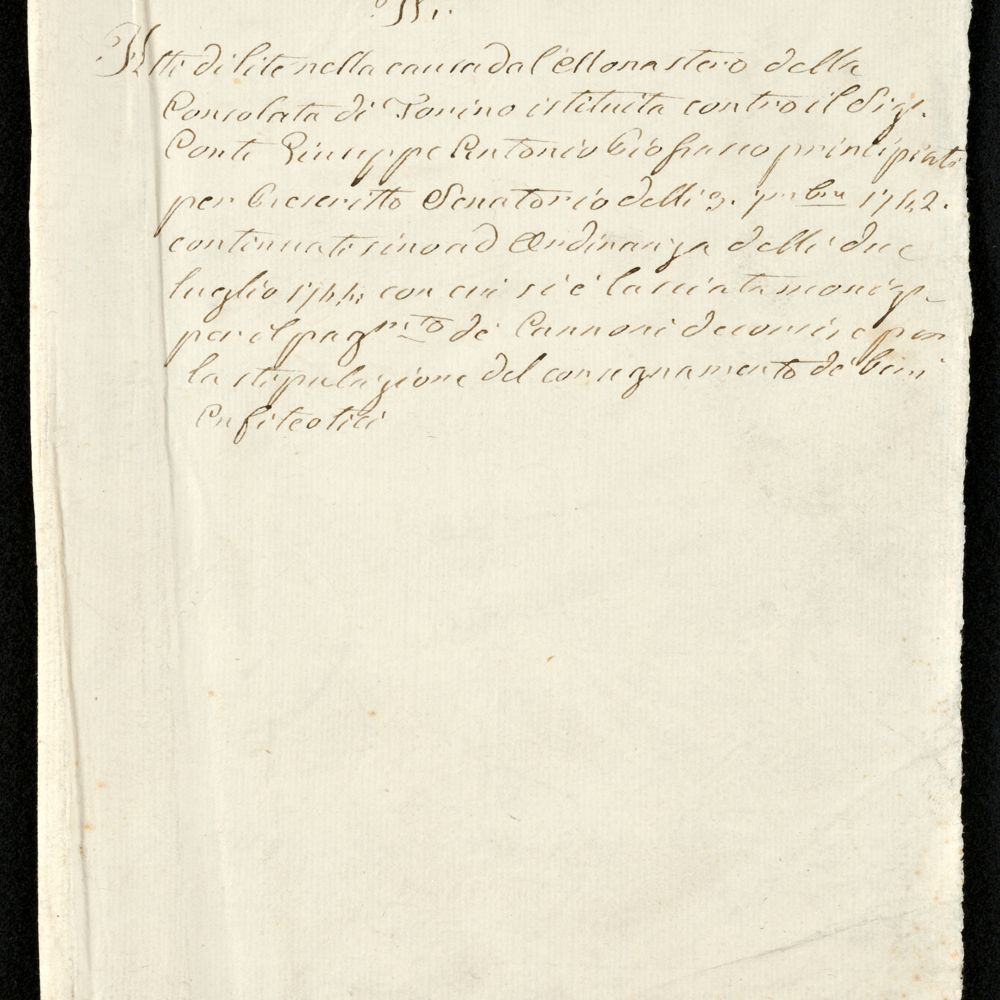 Atti di lite nella causa dal Monastero della
Consolata di Torino istituita contro il Sig.
Conte Giuseppe Antonio principiati
per Rescritto Senatorio delli 3. 7mbre 1742.
continuati sino ad Ordinanza delli due
luglio 1744: con cui si è lasciata
per il pagmto de' Cannoni decorsi, e per
la stipulazione del consegnamento de' beni
Enfiteotici